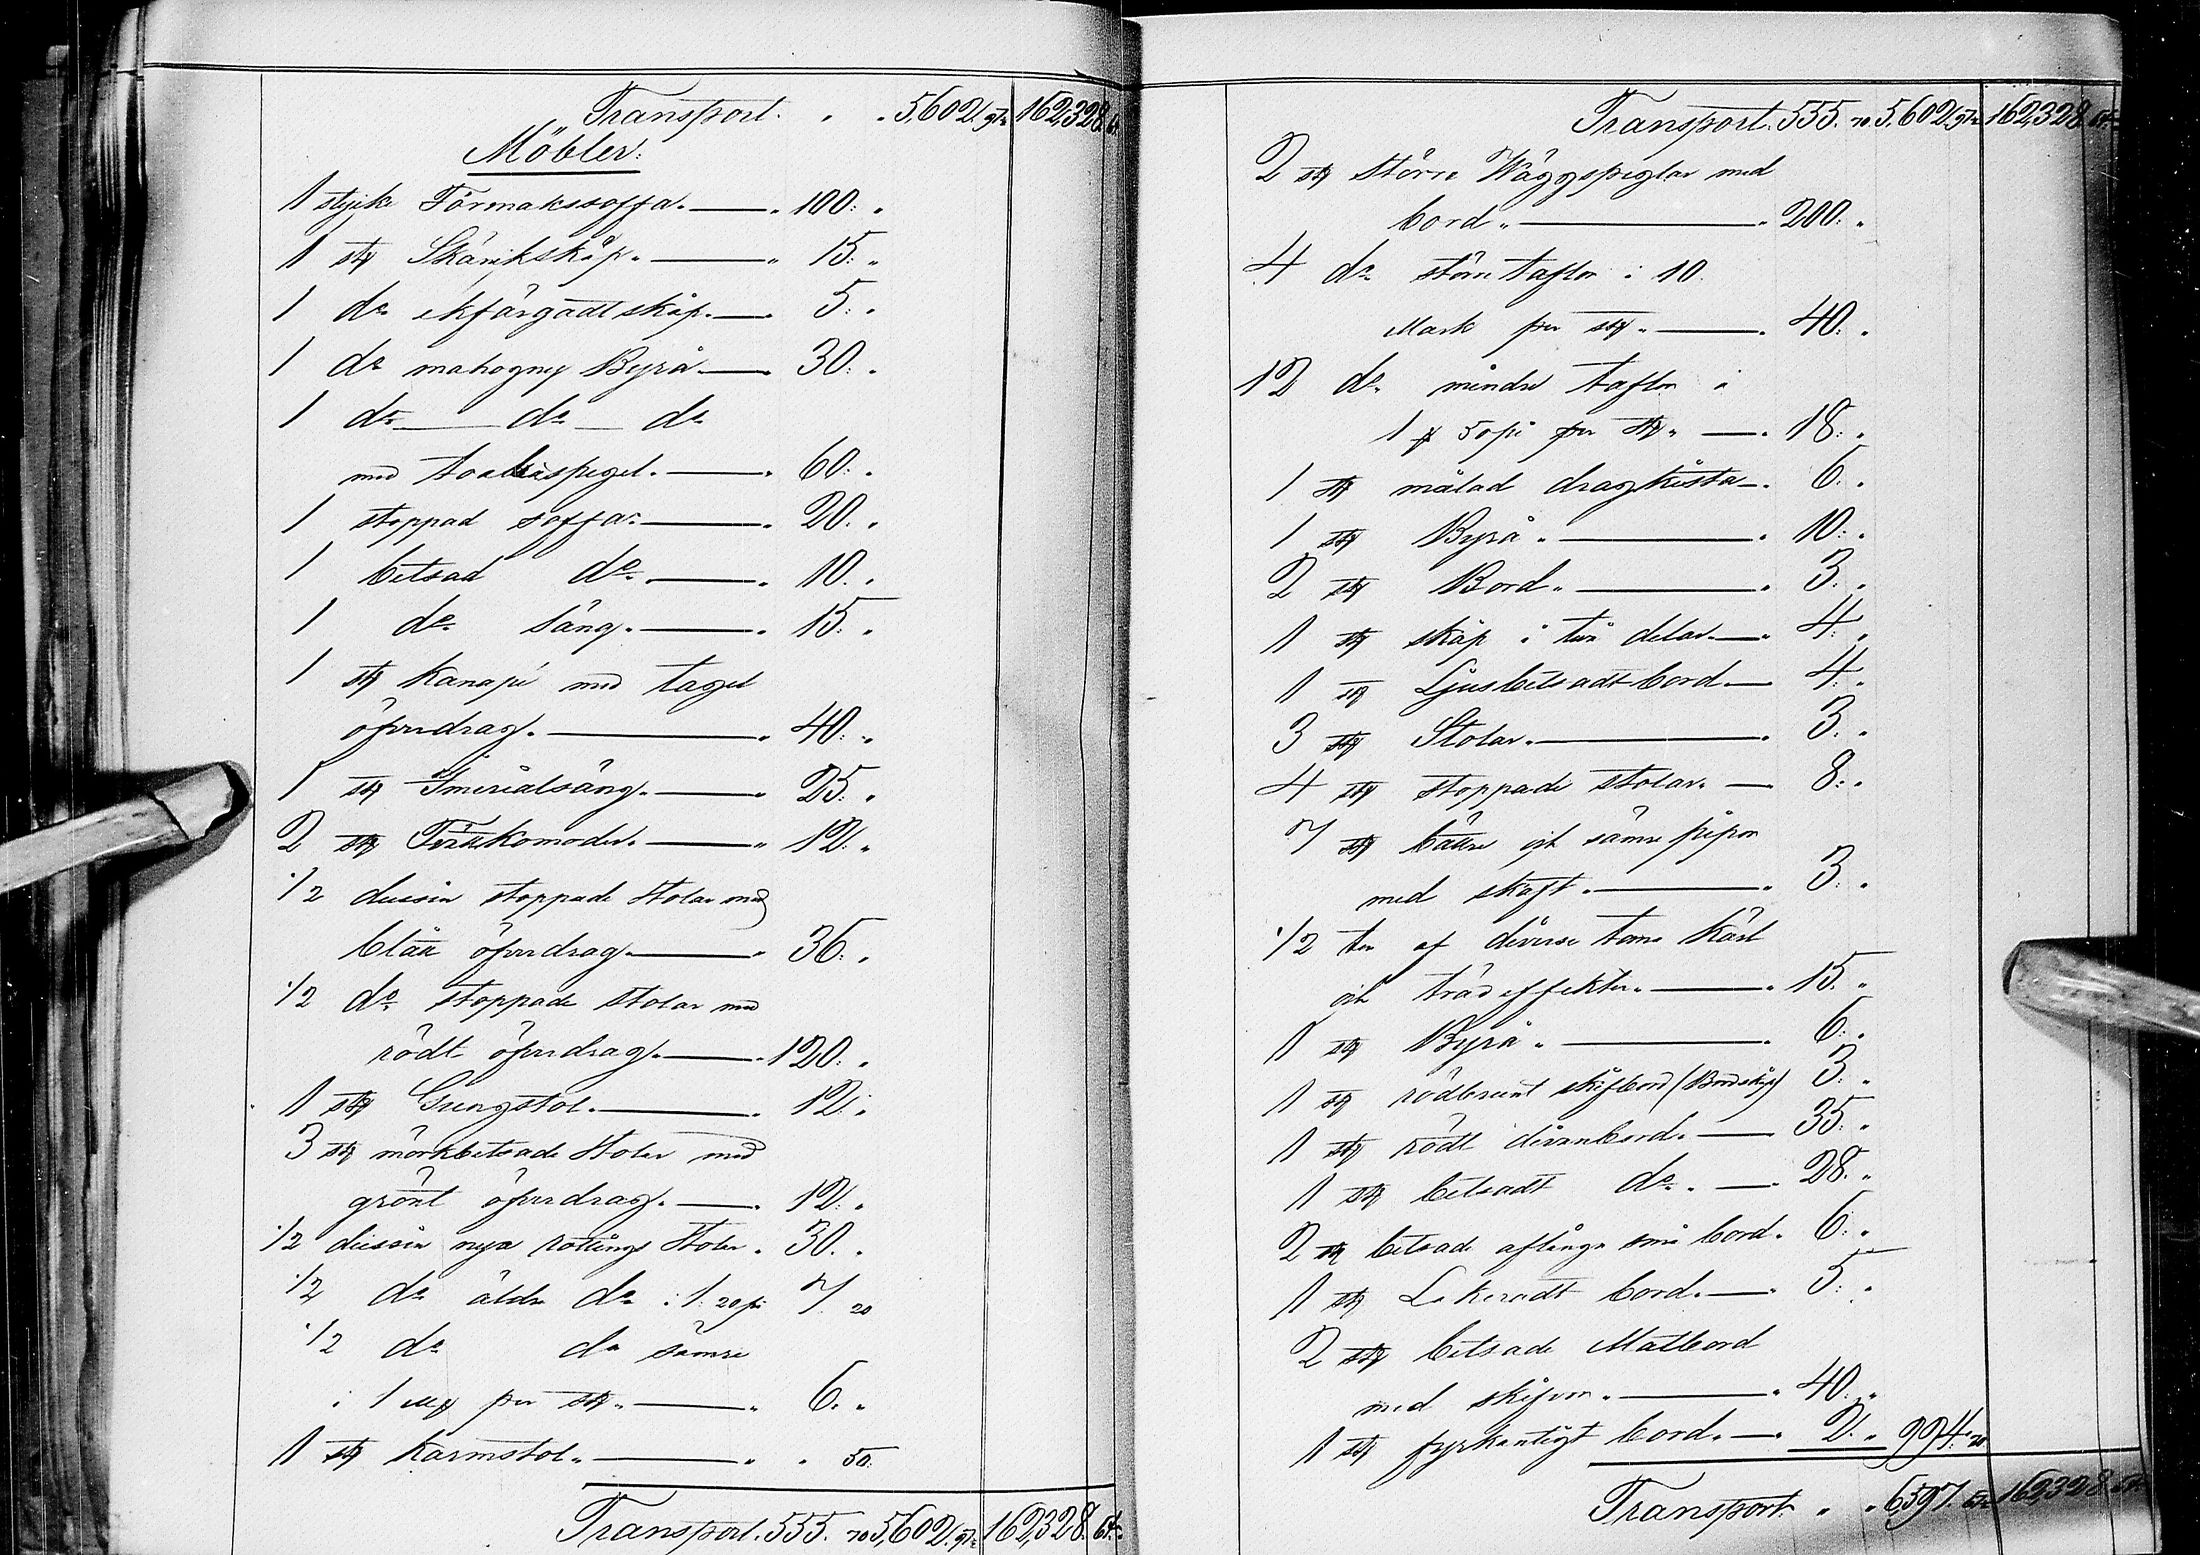 Transport. " " 5,602. 97. 162,328. 64.
Möbler:
1 stycke Förmakssoffa. " 100: "
1 stk Skänkskåp. " 15: "
1 do ekfärgadt skåp. " 5: "
1 do mahogny Byrå. " 30: "
1 do do do
med toalettspegel. " 60: "
1 stoppad soffa. " 20: "
1 betsad do. " 10. "
1 do säng. " 15: "
1 stk Kanapé med tagel
öfverdrag. " 40: "
1 stk Imerialsäng. " 25: "
2 stk Komoder. " 12: "
1/2 dussin stoppade Stolar med
blått öfverdrag. " 36: "
1/2 do stoppade stolar med
rödt öfverdrag. " 120: "
1 stk Gungstol. " 12: "
3 stk mörkbetsade Stolar med
grönt öfverdrag. " 12: "
1/2 dussin nya rottings Stolar. 30. "
1/2 do äldre do à 1: 20 pi 7. 20
1/2 do do sämre
à 1 Mk per stk. " 6. "
1 stk Karmstol. " " 50.
Transport. 555. 70 5,602. 97. 162,328. 64.
Transport. 555. 70 5,602. 97. 162,328. 64.
2 stk större Wäggspeglar med
bord. " 200: "
4 do större taflor à 10
Mark per stk. " 40: "
12 do mindre taflor à
1 50 pi per stk. " 18: "
1 stk målad dragkista. 6. "
1 stk Byrå. " 10: "
2 stk Bord. " 3. "
1 stk skåp i två delar. " 4. "
1 stk Ljusbetsadt bord. 4. "
3 stk Stolar. " 3. "
4 stk stoppade stolar. " 8: "
7 stk bättre och sämre pipor
med skaft. " 3. "
1/2 af diverse Kärl
och trädeffekter. " 15. "
1 stk Byrå. " 6: "
1 stk rödbrunt skifbord (Bordskifs) 3. "
1 stk rödt divanbord. " 35: "
1 stk betsadt do. " 28. "
2 stk betsade aflånga små bord. 6: "
1 stk Lakeradt bord. " 5: "
2 stk betsade Matbord
med skifvor. " 40. "
1 stk fyrkantigt bord. " 2. " 994: 70
Transport. " " 6,597. 162,328. 64.